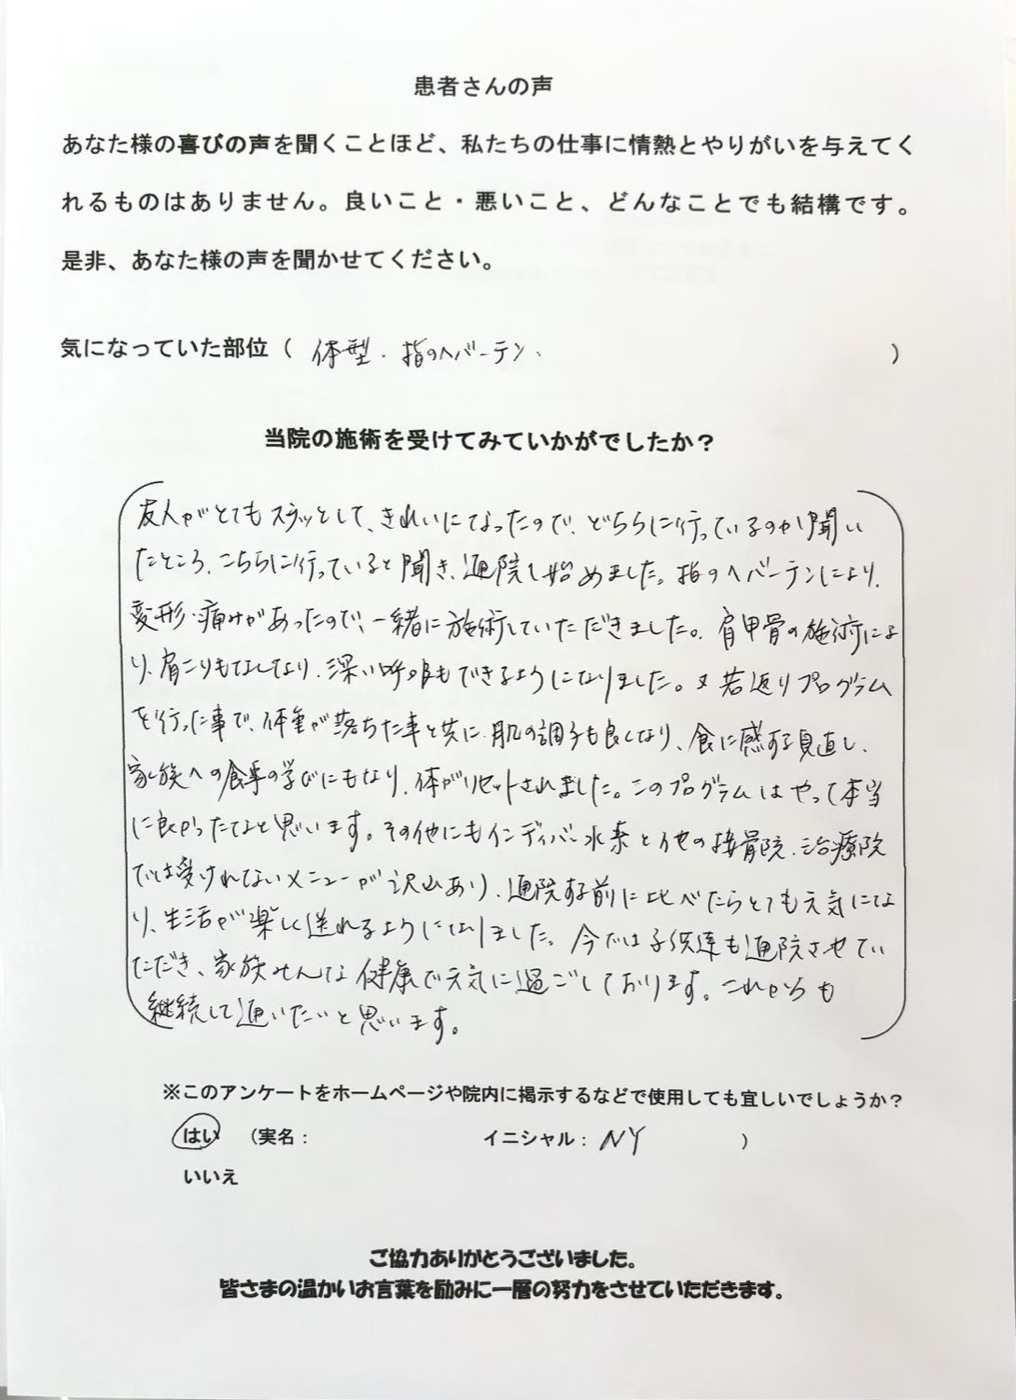 患者さんの声
あなた様の喜びの声を聞くことほど、私たちの仕事に情熱とやりがいを与えてく
れるものはありません。良いこと・悪いこと、どんなことでも結構です。
是非、あなた様の声を聞かせてください。
気になっていた部位（ 体型・指のヘバーデン． ）
当院の施術を受けてみていかがでしたか？
友人がとてもスラッとして、きれいになったので、どちらに行っているのか聞い
たところ、こちらに行っていると聞き、通院し始めました。指のヘバーデンにより、
変形・痛みがあったので、一緒に施術していただきました。肩甲骨の施術によ
り、肩こりもなくなり、深い呼吸もできるようになりました。又若返りプログラム
を行った事で、体重が落ちた事と共に、肌の調子も良くなり、食に感する見直し、
家族への食事の学びにもなり、体がリセットされました。このプログラムはやって本当
に良かったなと思います。その他にもインディバ・水素と他の接骨院、治療院
では受けれないメニューが沢山あり、通院する前に比べたらとても元気にな
り、生活が楽しく送れるようになりました。今では子供達も通院させてい
ただき、家族みんな健康で元気に過ごしております。これからも
継続して通いたいと思います。
※このアンケートをホームページや院内に掲示するなどで使用しても宜しいでしょうか？
はい （実名： イニシャル：NY ）
いいえ
ご協力ありがとうございました。
皆さまの温かいお言葉を励みに一層の努力をさせていただきます。